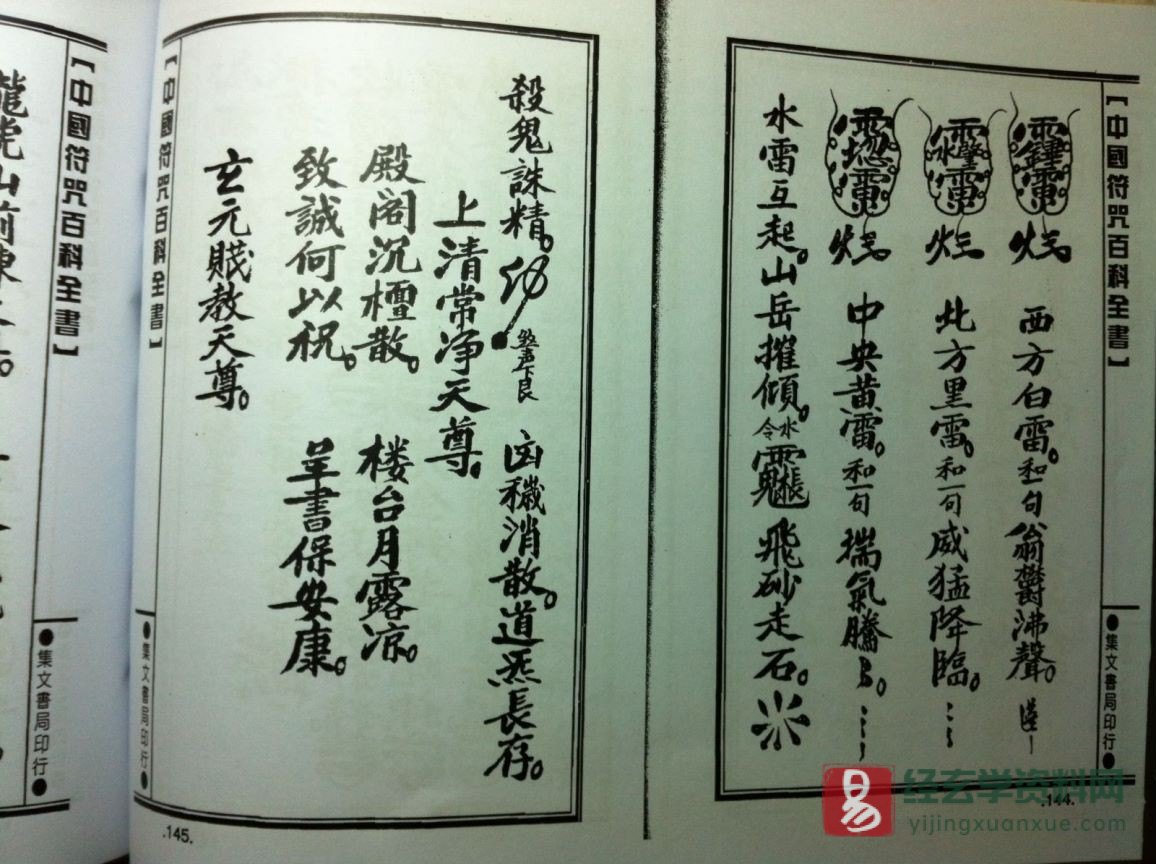 【中國符咒百科全書】
西方白雷。和一句翁欝沸聲。
北方里雷。和一句威猛降臨。
中央黄雷。和一句揣氣騰
水雷互起。山岳摧傾。水令飛砂走石。
●集文書局印行●
.144.
殺鬼誅精。凶穢消散。道炁長存。
上清常净天尊。
殿阁沉檀散。楼台月露凉。
致誠何以祝。呈書保安康。
玄元賤教天尊。
【中國符咒百科全書】
●集文書局印行●
.145.
【中國符咒百科全書】
●集文書局印行●
龍虎山前
易
经玄学资料网
yijingxuanxue.com